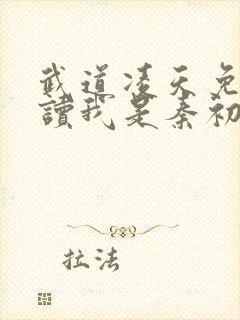 武道凌天免
讀我是秦初
拉法